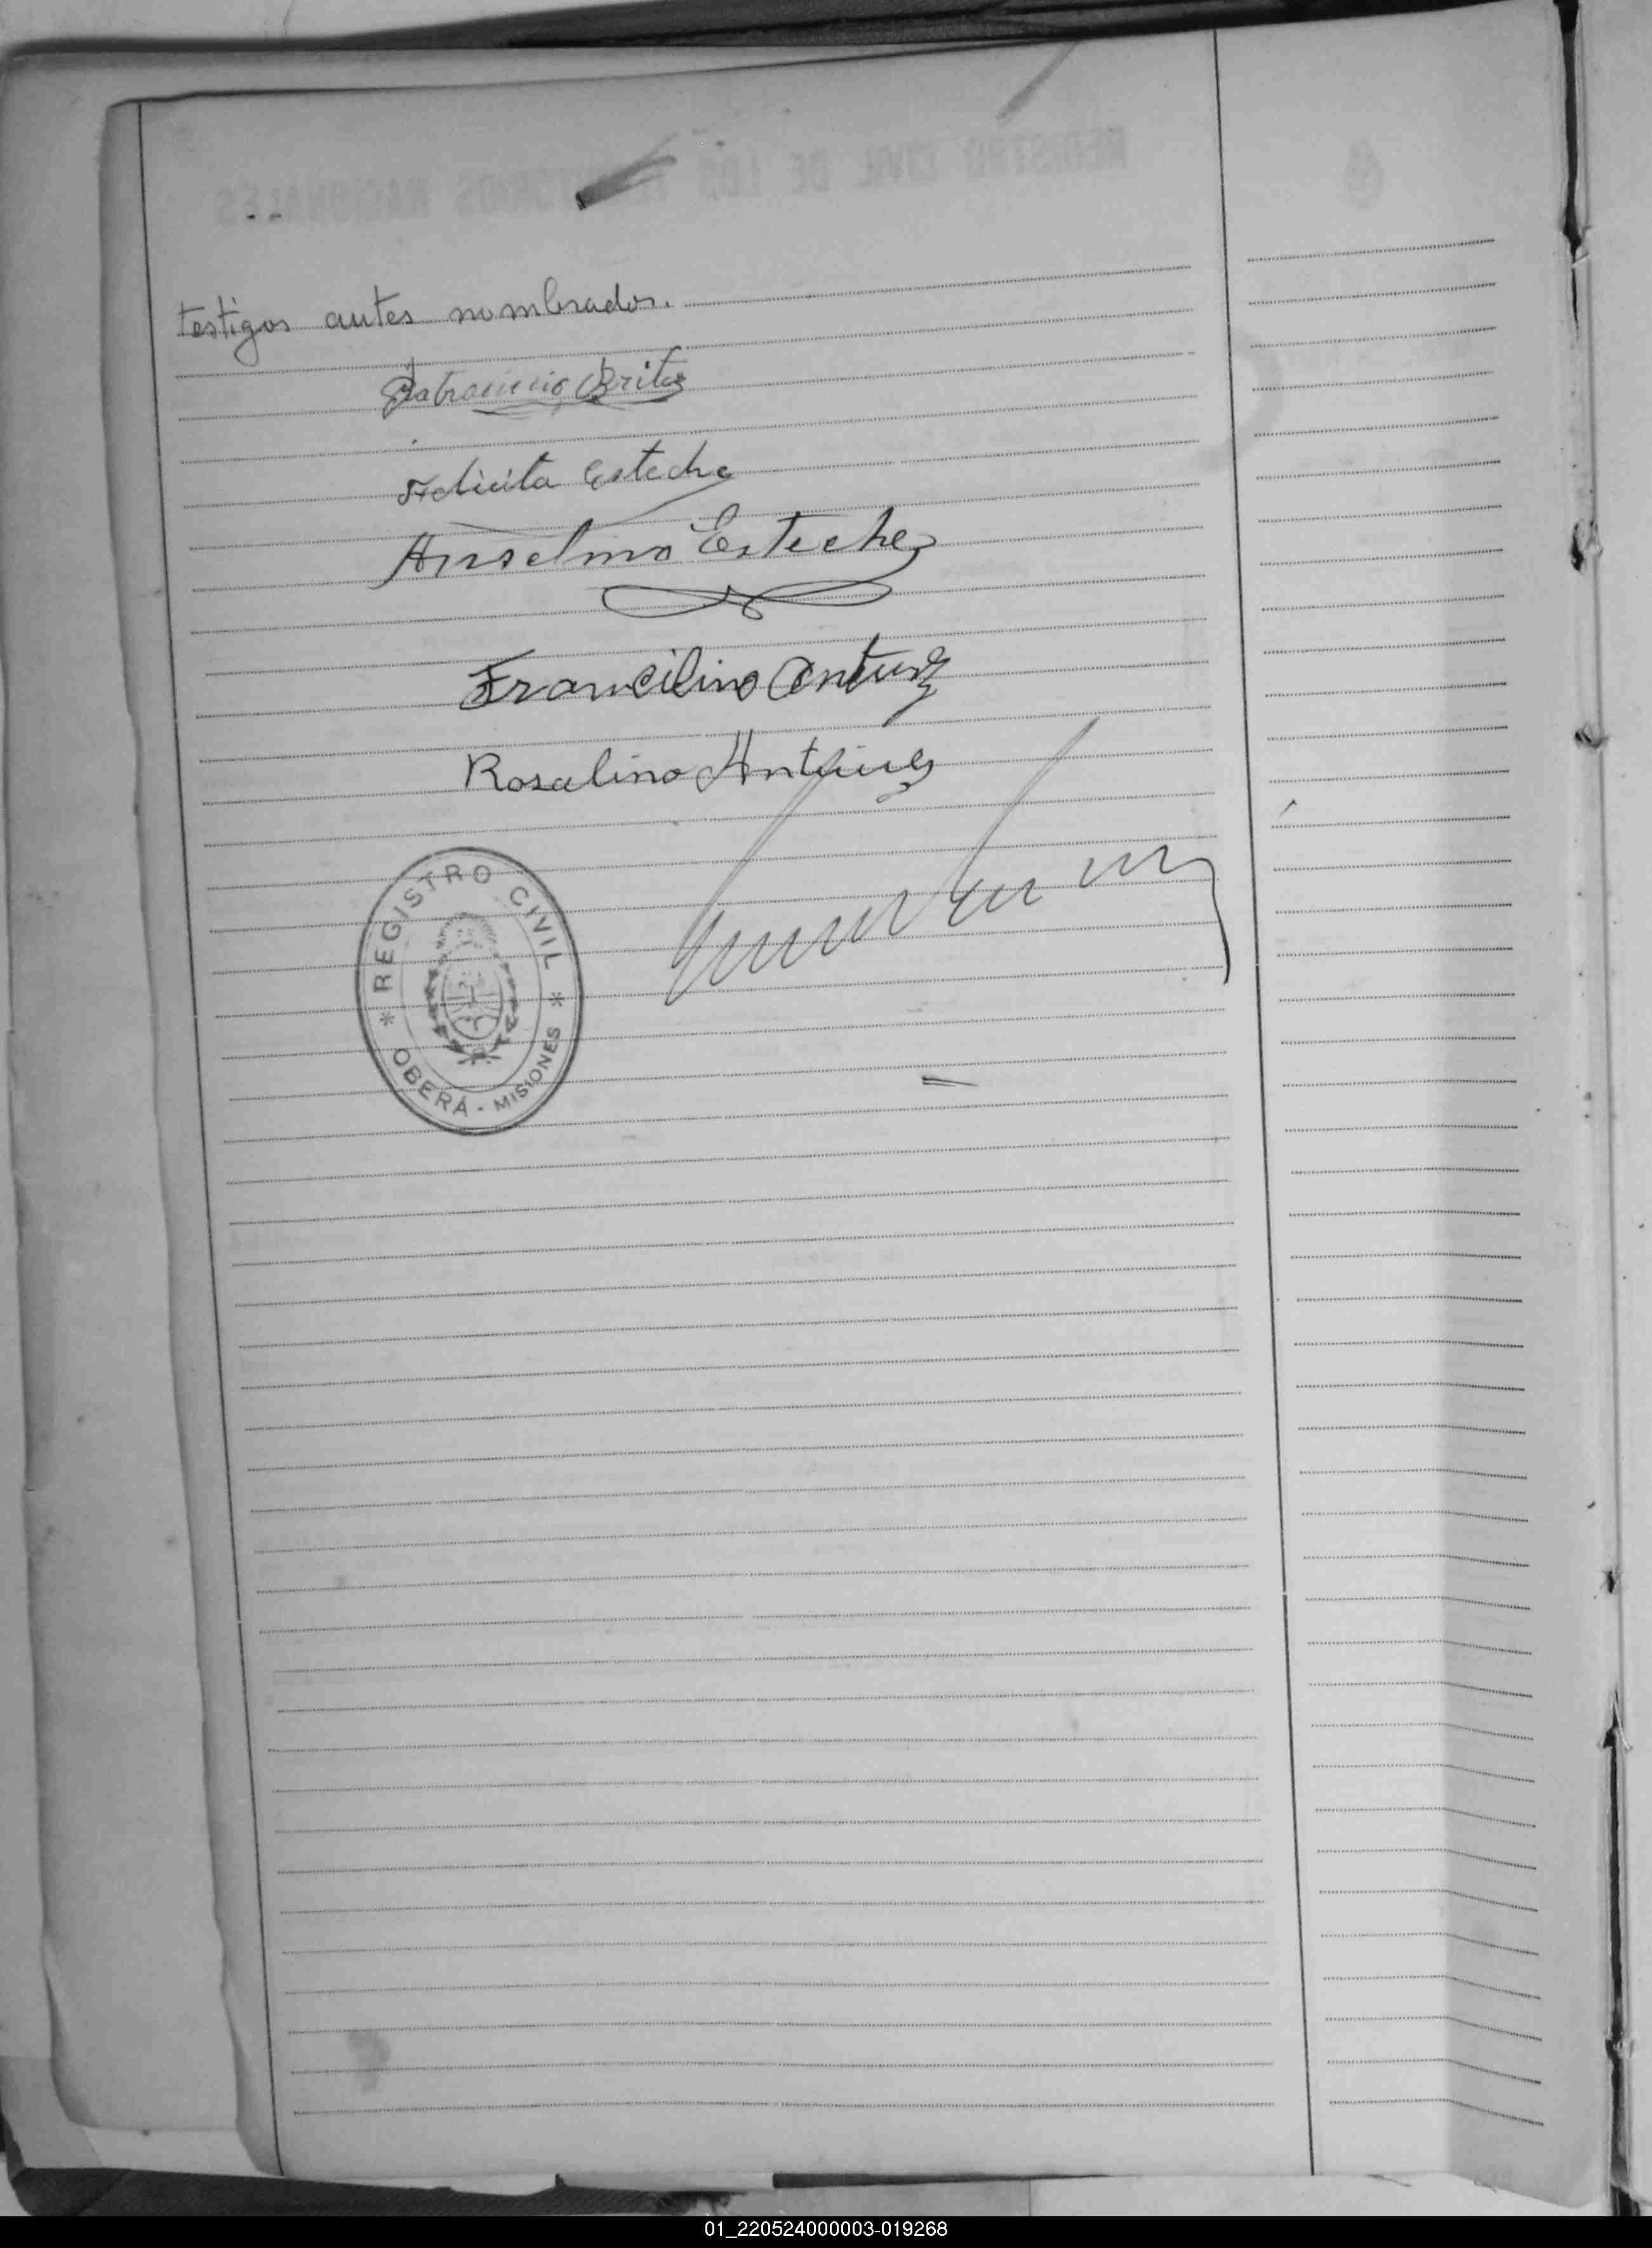 testigos antes nombrados.
Patrocinio Britez
Felicita Esteche
Anselmo Esteche
Francilino Antunez
Rosalino Antunez
* REGISTRO CIVIL *
OBERÁ - MISIONES
01_220524000003-019268